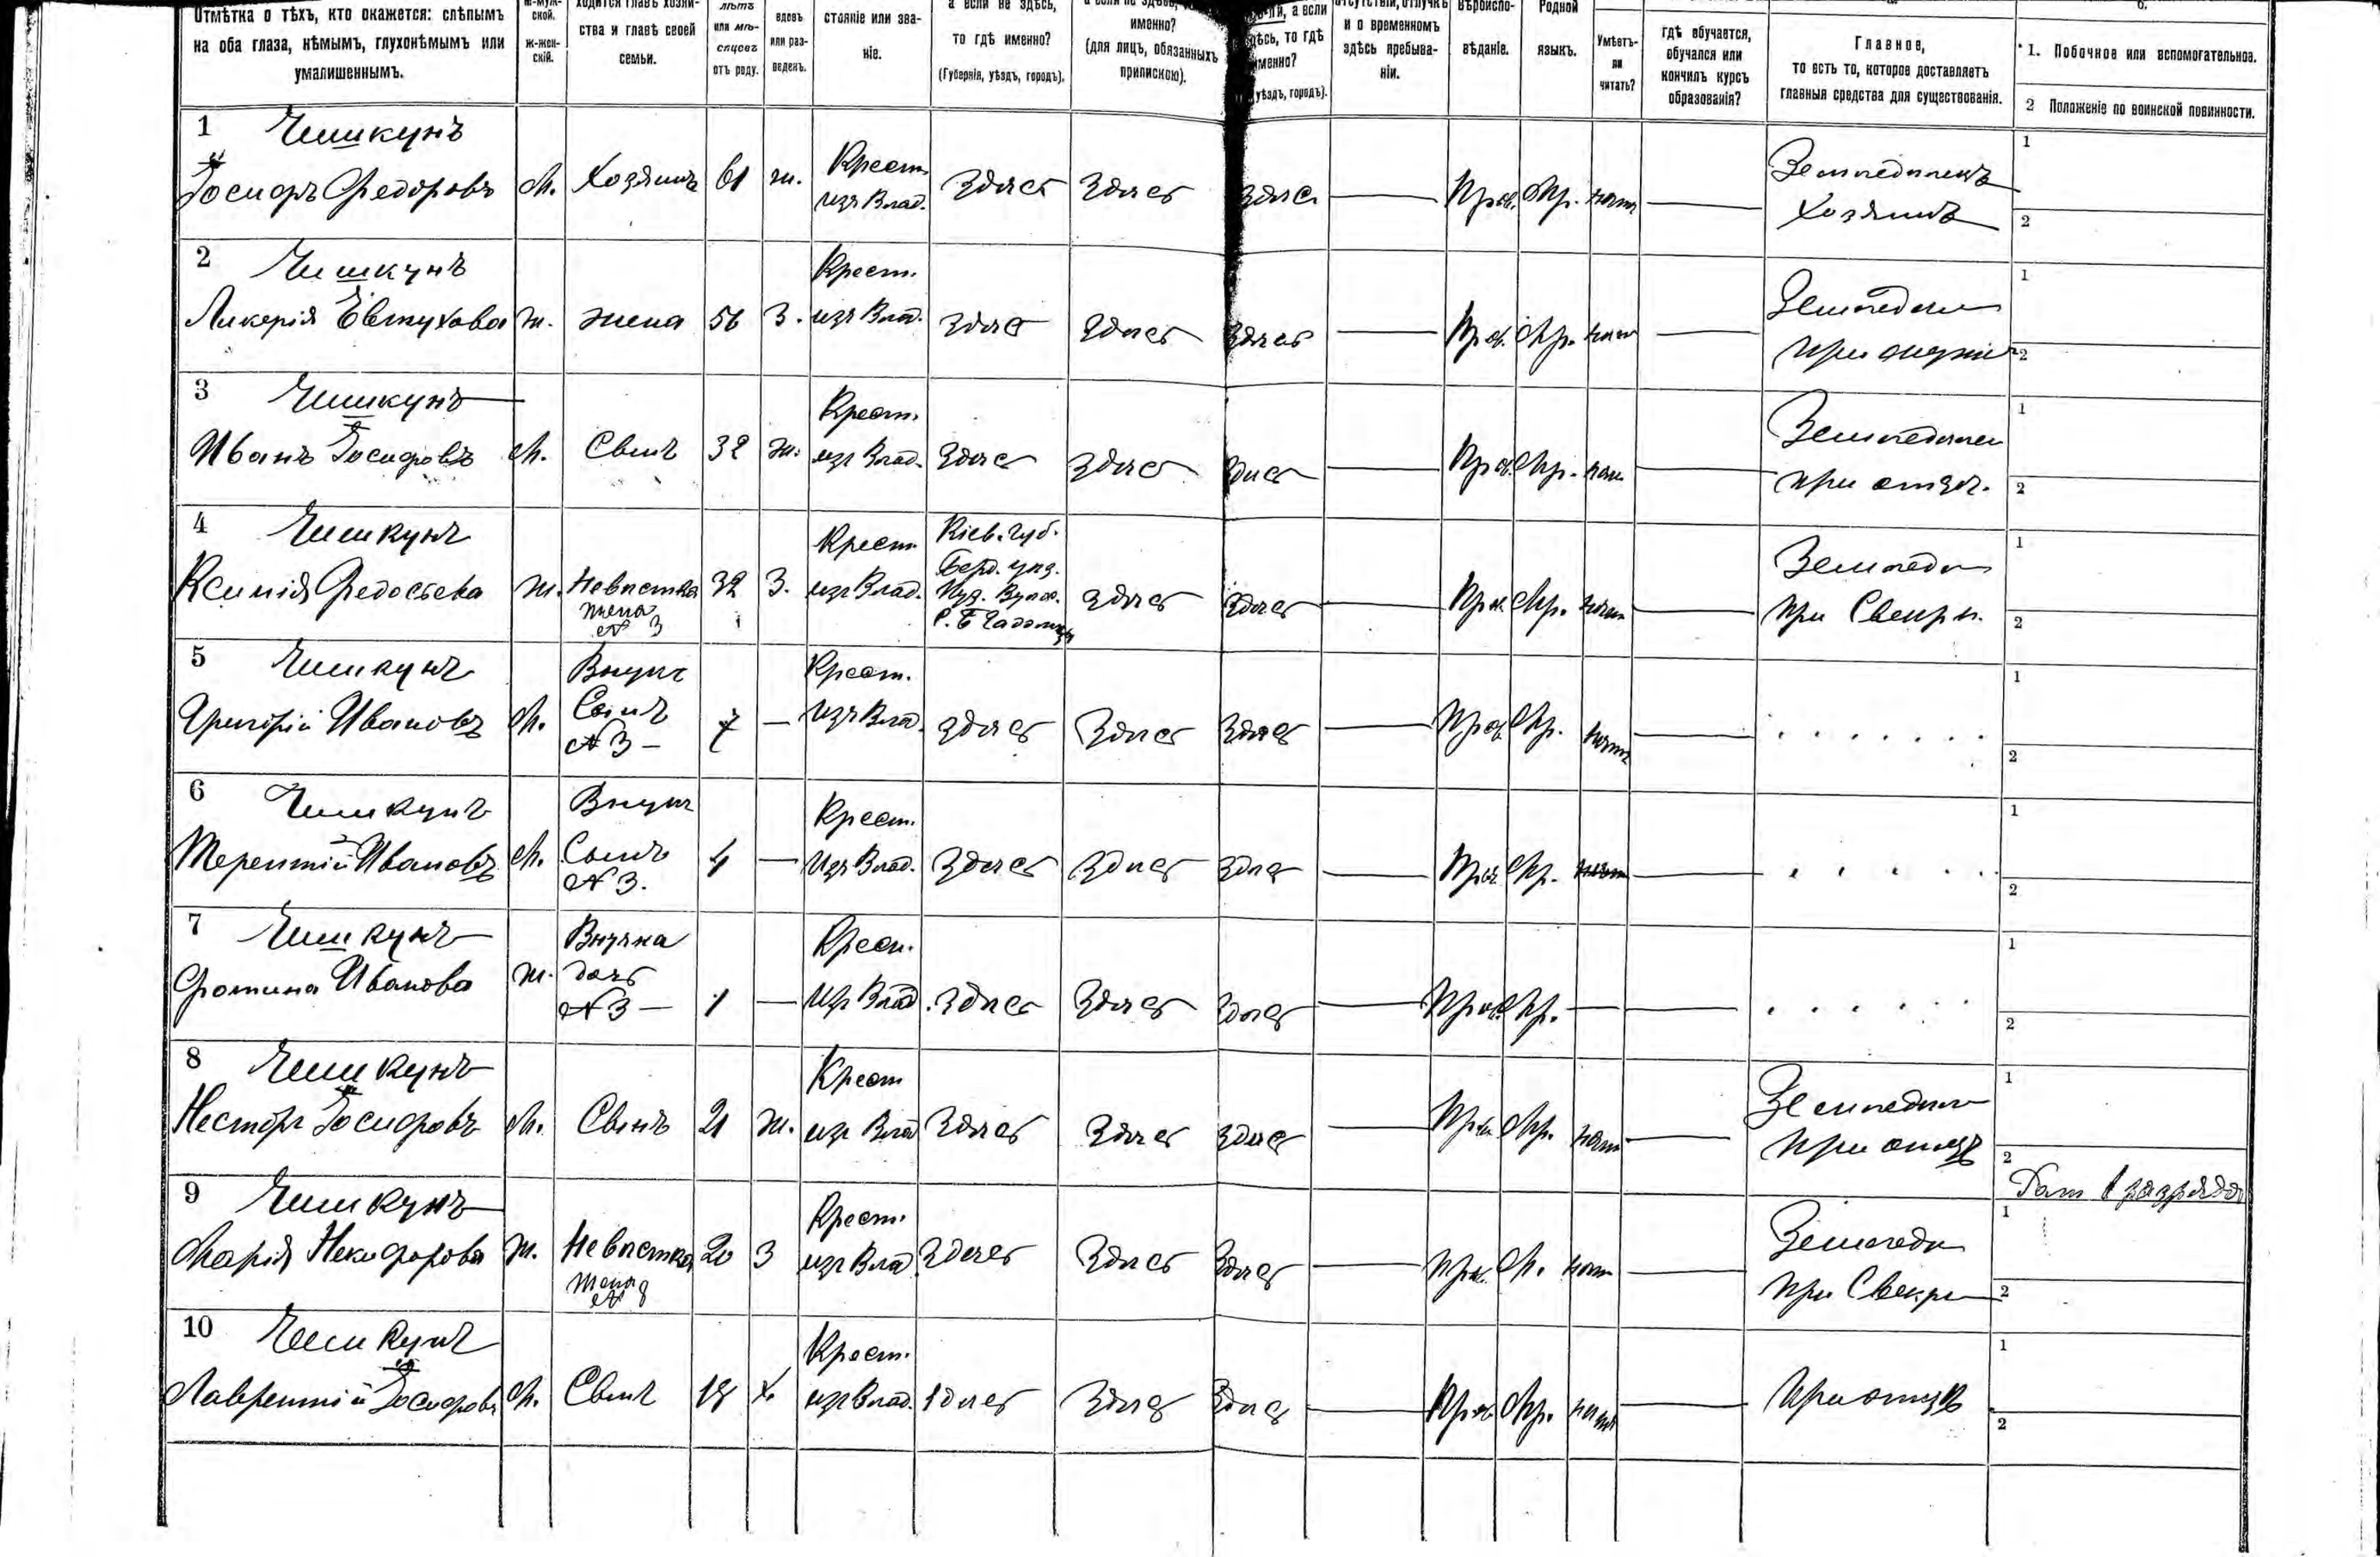 Отмѣтка о тѣхъ, кто окажется: слѣпымъ
на оба глаза, нѣмымъ, глухонѣмымъ или
умалишеннымъ.
ской.
ж-жен-
скій.
ства и главѣ своей
семьи.
лѣтъ
или мѣ-
сяцевъ
отъ роду.
вдовъ
или раз-
веденъ.
стояніе или зва-
ніе.
а если не здѣсь,
то гдѣ именно?
(Губернія, уѣздъ, городъ).
именно?
(для лицъ, обязанныхъ
припискою).
а если
то гдѣ
уѣздъ, городъ).
и о временномъ
здѣсь пребыва-
ніи.
Вѣроиспо-
вѣданіе.
Родной
языкъ.
Умѣетъ-
ли
читать?
гдѣ обучается,
обучался или
кончилъ курсъ
образованія?
Главное,
то есть то, которое доставляетъ
главныя средства для существованія.
1. Побочное или вспомогательное.
2 Положеніе по воинской повинности.
1 Чишкунъ
Іосифъ Федоровъ м. Хозяинъ 61 ж. Крест. изъ Влад. Здѣсь Здѣсь Здѣсь Прав. Мр. нѣтъ Земледѣлецъ Хозяинъ
1
2
2 Чишкунъ
Ликерія Евтухова ж. жена 56 З. Крест. изъ Влад. Здѣсь Здѣсь Здѣсь Прав. Мр. нѣтъ при мужѣ
1
2
3 Чишкунъ
Иванъ Іосифовъ м. Сынъ 32 ж. Крест. изъ Влад. Здѣсь Здѣсь Здѣсь Прав. Мр. нѣтъ при отцѣ.
1
2
4 Чишкунъ
Ксенія Федосѣева ж. Невѣстка жена № 3 32 З. Крест. изъ Влад. Кіев. губ. Берд. уѣз. Здѣсь Здѣсь Прав. Мр. нѣтъ при Свекрѣ.
1
2
5 Чишкунъ
Григорій Ивановъ м. Внукъ Сынъ № 3 — 7 — Крест. изъ Влад. Здѣсь Здѣсь Здѣсь Прав. Мр. нѣтъ . . . . . . .
1
2
6 Чишкунъ
Терентій Ивановъ м. Внукъ Сынъ № 3. 4 — Крест. Изъ Влад. Здѣсь Здѣсь Здѣсь Прав. Мр. нѣтъ . . . . . .
1
2
7 Чишкунъ
Фотина Иванова ж. Внучка дочь № 3 — 1 — Крест. Изъ Влад. Здѣсь Здѣсь Здѣсь Прав. Мр. — . . . . . .
1
2
8 Чишкунъ
Несторъ Іосифовъ м. Сынъ 21 ж. Крест изъ Влад Здѣсь Здѣсь Здѣсь Прав. Мр. нѣтъ при отцѣ
1
2
Рат 1 разряда
9 Чишкунъ
Марія Некифорова ж. Невѣстка жена № 8 20 З Крест. изъ Влад. Здѣсь Здѣсь Здѣсь Прав. М. нѣтъ при Свекрѣ
1
2
10 Чишкунъ
Лаврентій Іосифовъ м. Сынъ 18 х Крест. изъ Влад. Здѣсь Здѣсь Здѣсь Прав. Мр. нѣтъ При отцѣ
1
2